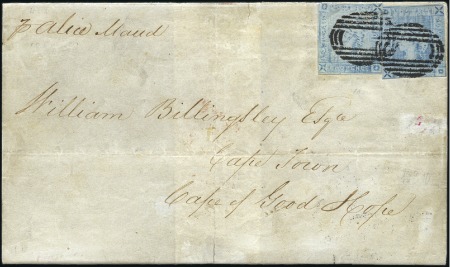 p Alice Maud
William Billingsley Esqre
Cape Town
Cape of Good Hope